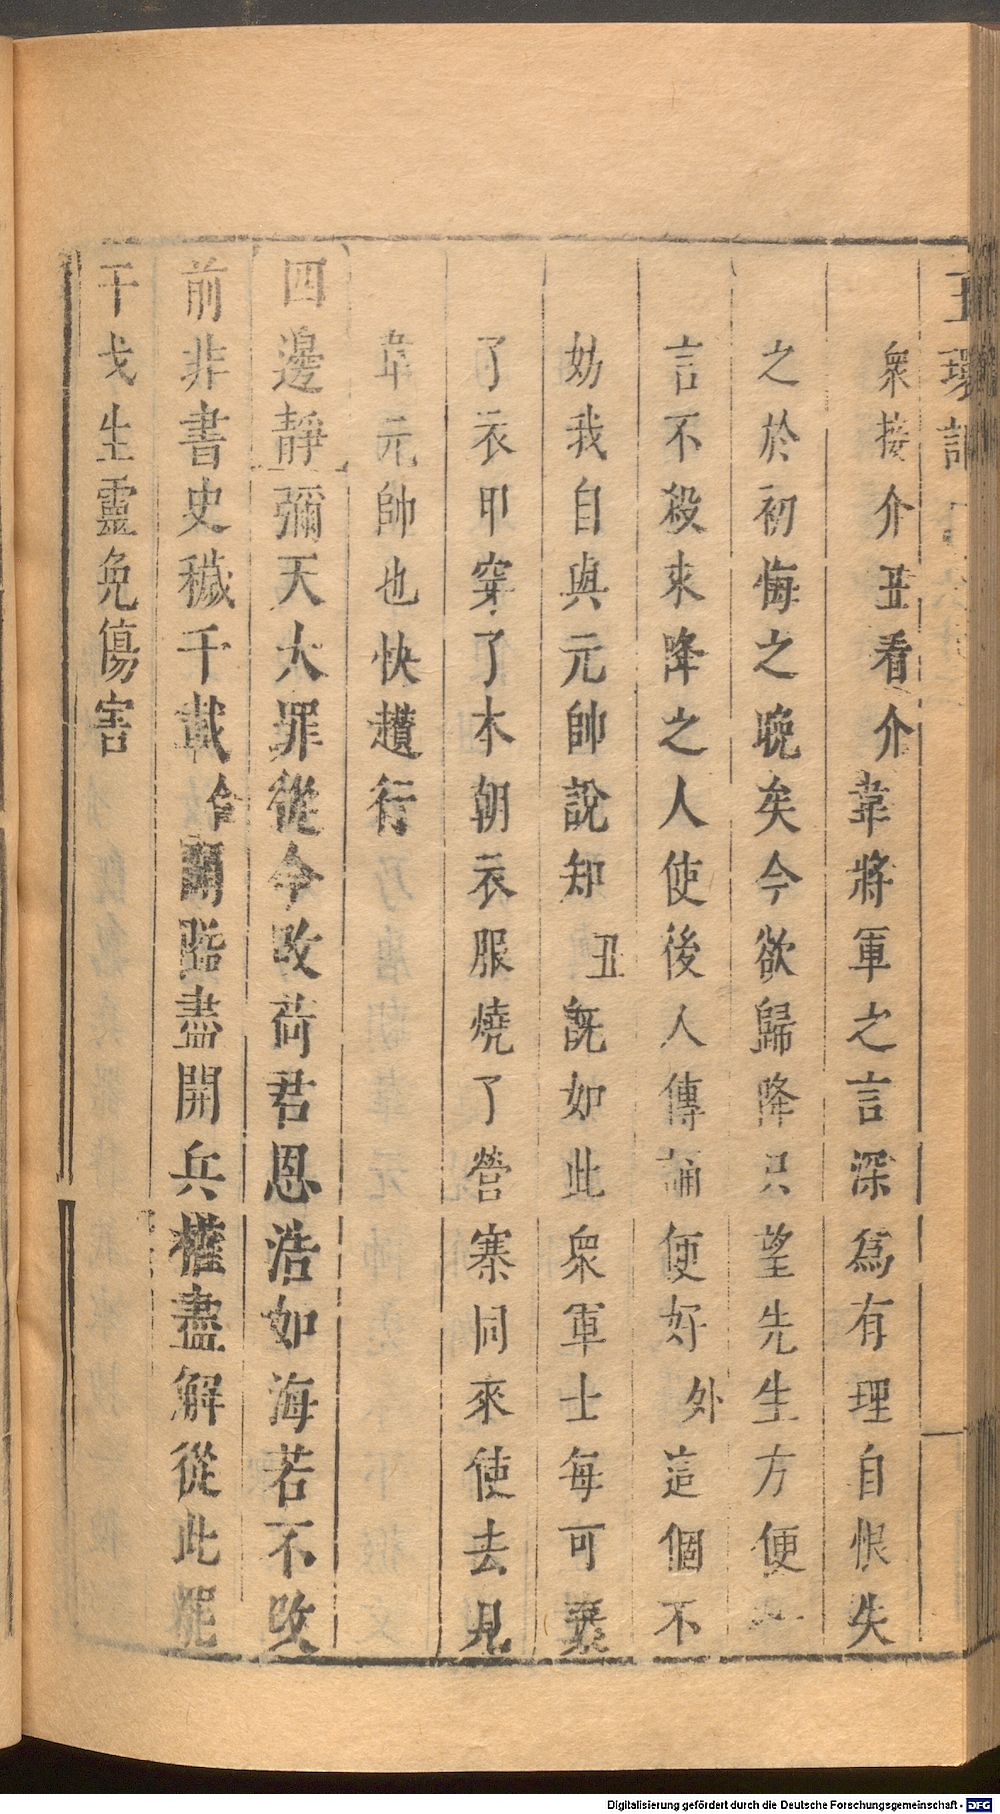 玉環記
衆接介丑看介韋將軍之言深爲有理自恨失
之於初悔之晚矣今欲歸降只望先生方便
言不殺來降之人使後人傳誦便好外這個不
妨我自與元帥說知丑旣如此衆軍士每可棄
了衣甲穿了本朝衣服燒了營寨同來使去見
韋元帥也快趲行
四邊靜彌天大罪從今改荷君恩浩如海若不改
前非書史穢千載合開盡開兵權盡解從此罷
干戈生靈免傷害
Digitalisierung gefördert durch die Deutsche Forschungsgemeinschaft - DFG